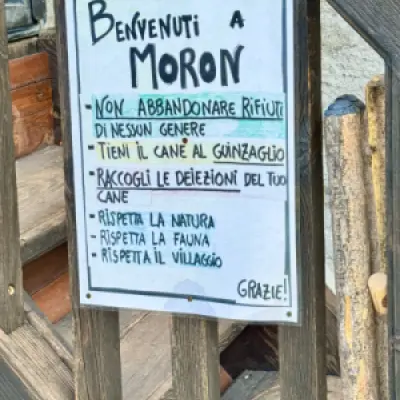 BENVENUTI A
MORON
- NON ABBANDONARE RIFIUTI
DI NESSUN GENERE
- TIENI IL CANE AL GUINZAGLIO
- RACCOGLI LE DEIEZIONI DEL TUO
CANE
- RISPETTA LA NATURA
- RISPETTA LA FAUNA
- RISPETTA IL VILLAGGIO
GRAZIE!